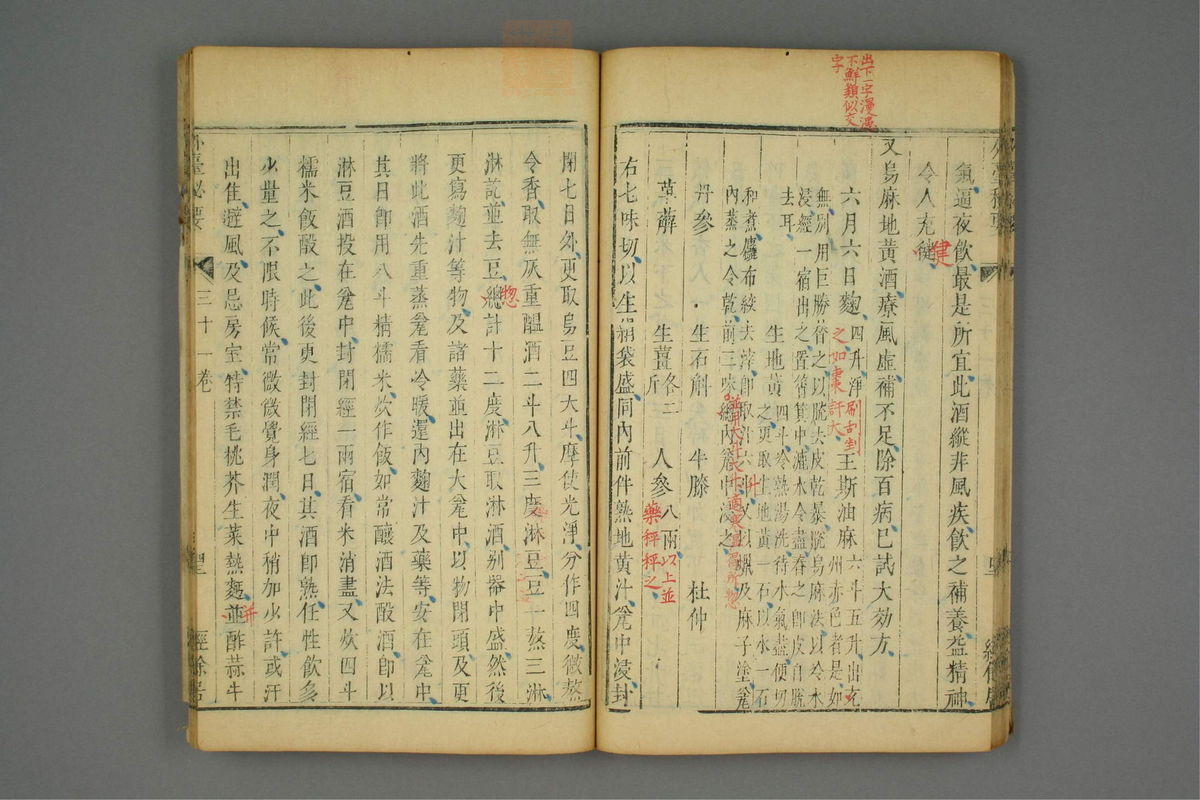 出下一字漫漶
不鮮類似交
字
氣逼夜飲最是所宜此酒縱非風疾飲之補養益精神
令人充健
健
又烏麻地黃酒療風虛補不足除百病已試大効方
六月六日麴四升淨刷刮剉
之如棗許大
王斯油麻六斗五升出
州赤色者是如
無別用巨勝
浸經一宿出之置筲箕中漉水令盡舂之即皮自脫
去耳
生地黃四斗冷熱湯洗待水氣盡便切
之更取生地黃一石以水一石
和煮
布絞去滓即取汁六
內蒸之令乾前三味總內甕中浸之
丹參 生石斛 牛膝 杜仲
萆薢 生薑各二
斤 人參八兩以上並
藥秤秤之
右七味切以生絹袋盛同內前件熟地黃汁甕中浸封
閉七日外更取烏豆四大斗摩使光淨分作四度微熬
令香取無灰重醞酒二斗八升三度淋豆豆一熬三淋
淋訖並去豆總計十二度淋豆取淋酒別器中盛然後
惣
更寫麴汁等物及諸藥並出在大甕中以物閉頭及更
將此酒先重蒸甕看冷暖還內麴汁及藥等安在甕中
其日即用八斗精糯米炊作飯如常釀酒法酘酒即以
淋豆酒投在甕中封閉經一兩宿看米消盡又炊四斗
糯米飯酘之此後更封閉經七日其酒即熟任性飲多
少量之不限時候常微微覺身潤夜中稍加少許或汗
出住避風及忌房室特禁毛桃芥生菜熱麵並酢蒜牛
并
外臺秘要
三十一卷
經餘居